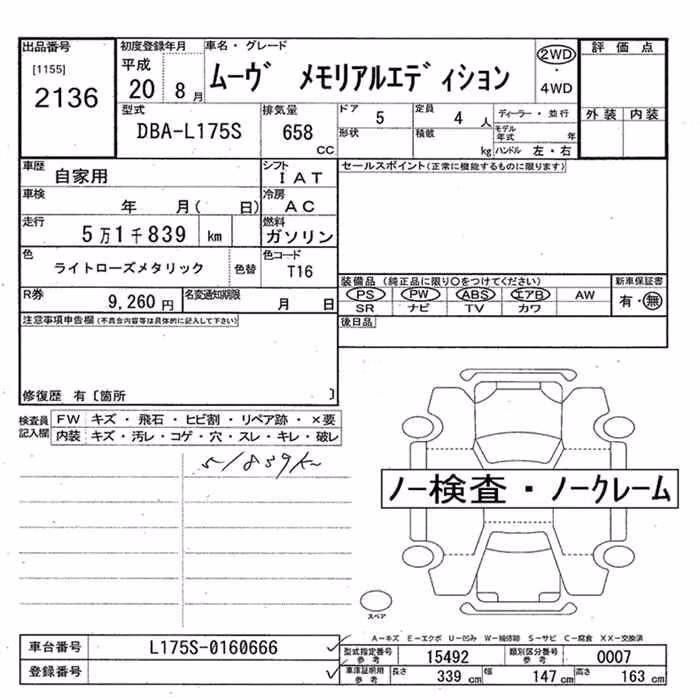 出品番号
[1155]
2136
初度登録年月
平成
20 8月
車名・グレード
ムーヴ メモリアルエディション
2WD
・
4WD
評価点
外装 内装
型式
DBA-L175S
排気量
658
CC
ドア 5
定員 4 人
形状
積載 kg
ディーラー・並行
モデル年式 年
ハンドル 左・右
車歴 自家用
シフト IAT
車検 年 月( 日)
冷房 AC
走行 5万1千839 km
燃料 ガソリン
色 ライトローズメタリック 色替
色コード T16
R券 9,260 円
名変通知期限 月 日
セールスポイント(正常に機能するものに限ります)
装備品 (純正品に限り○をつけてください)
PS PW ABS エアB AW
SR ナビ TV カワ
新車保証書
有・無
後日品
注意事項申告欄(不具合内容等は具体的に記入して下さい)
修復歴 有〔箇所 〕
検査員記入欄
FW キズ・飛石・ヒビ割・リペア跡・×要
内装 キズ・汚レ・コゲ・穴・スレ・キレ・破レ
51839km
ノー検査・ノークレーム
スペア
A-キズ E-エクボ U-凹み W-補修跡 S-サビ C-腐食 XX-交換済
車台番号 L175S-0160666
登録番号
型式指定番号参考 15492
類別区分番号参考 0007
車庫証明用参考 長さ 339 cm 幅 147 cm 高さ 163 cm